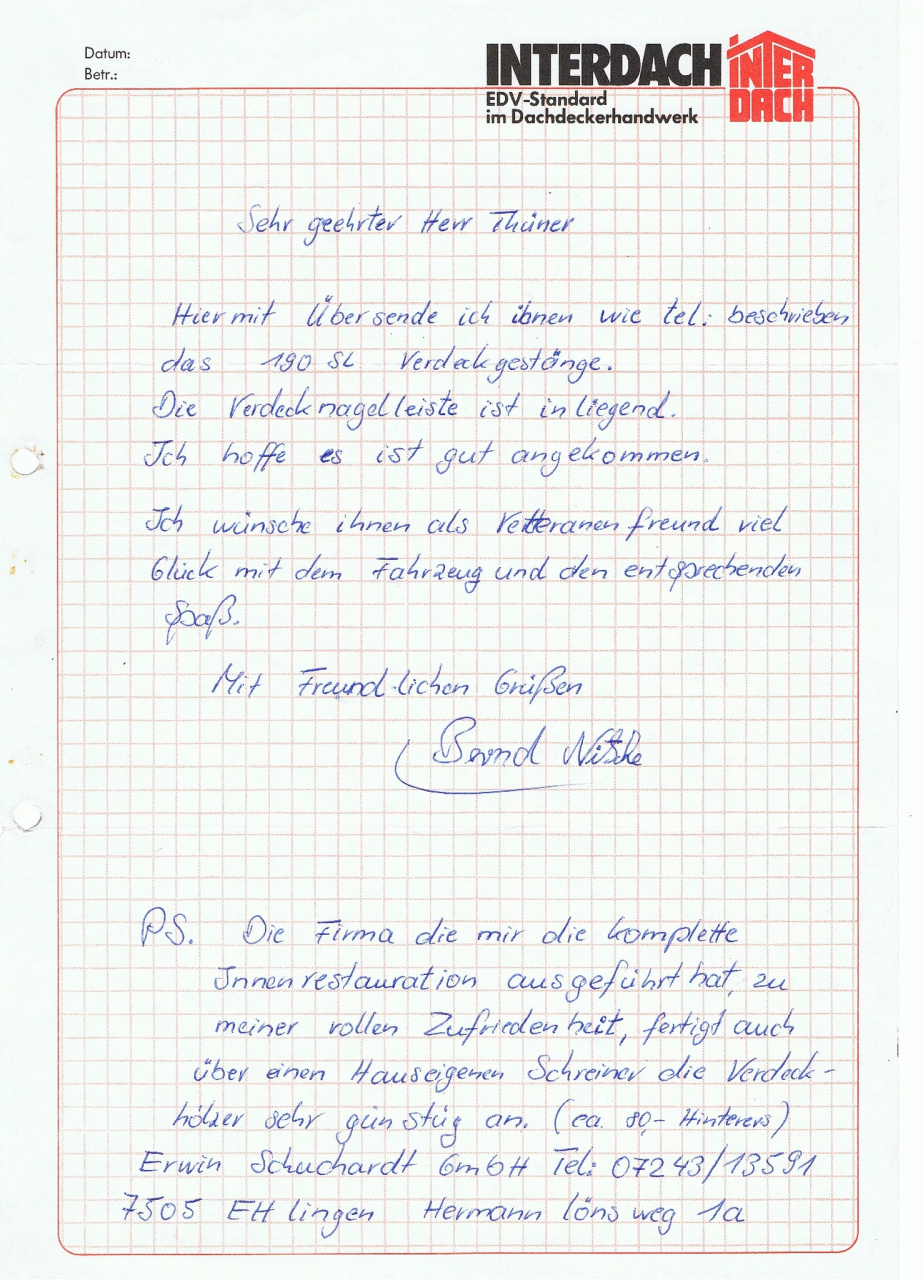 Datum:
Betr.:
INTERDACH
EDV-Standard
im Dachdeckerhandwerk
INTER
DACH
Sehr geehrter Herr Thüner
Hiermit Übersende ich ihnen wie tel. beschrieben
das 190 SL Verdeckgestänge.
Die Verdecknagelleiste ist inliegend.
Ich hoffe es ist gut angekommen.
Ich wünsche ihnen als Vetteranenfreund viel
Glück mit dem Fahrzeug und den entsprechenden
Spaß.
Mit Freundlichen Grüßen
Bernd Nitsche
PS. Die Firma die mir die komplette
Innenrestauration ausgeführt hat, zu
meiner vollen Zufriedenheit, fertigt auch
über einen Hauseigenen Schreiner die Verdeck-
hölzer sehr günstig an. (ca. 80,- Hinteres)
Erwin Schuchardt GmbH Tel: 07243/13591
7505 Ettlingen Hermann löns weg 1a